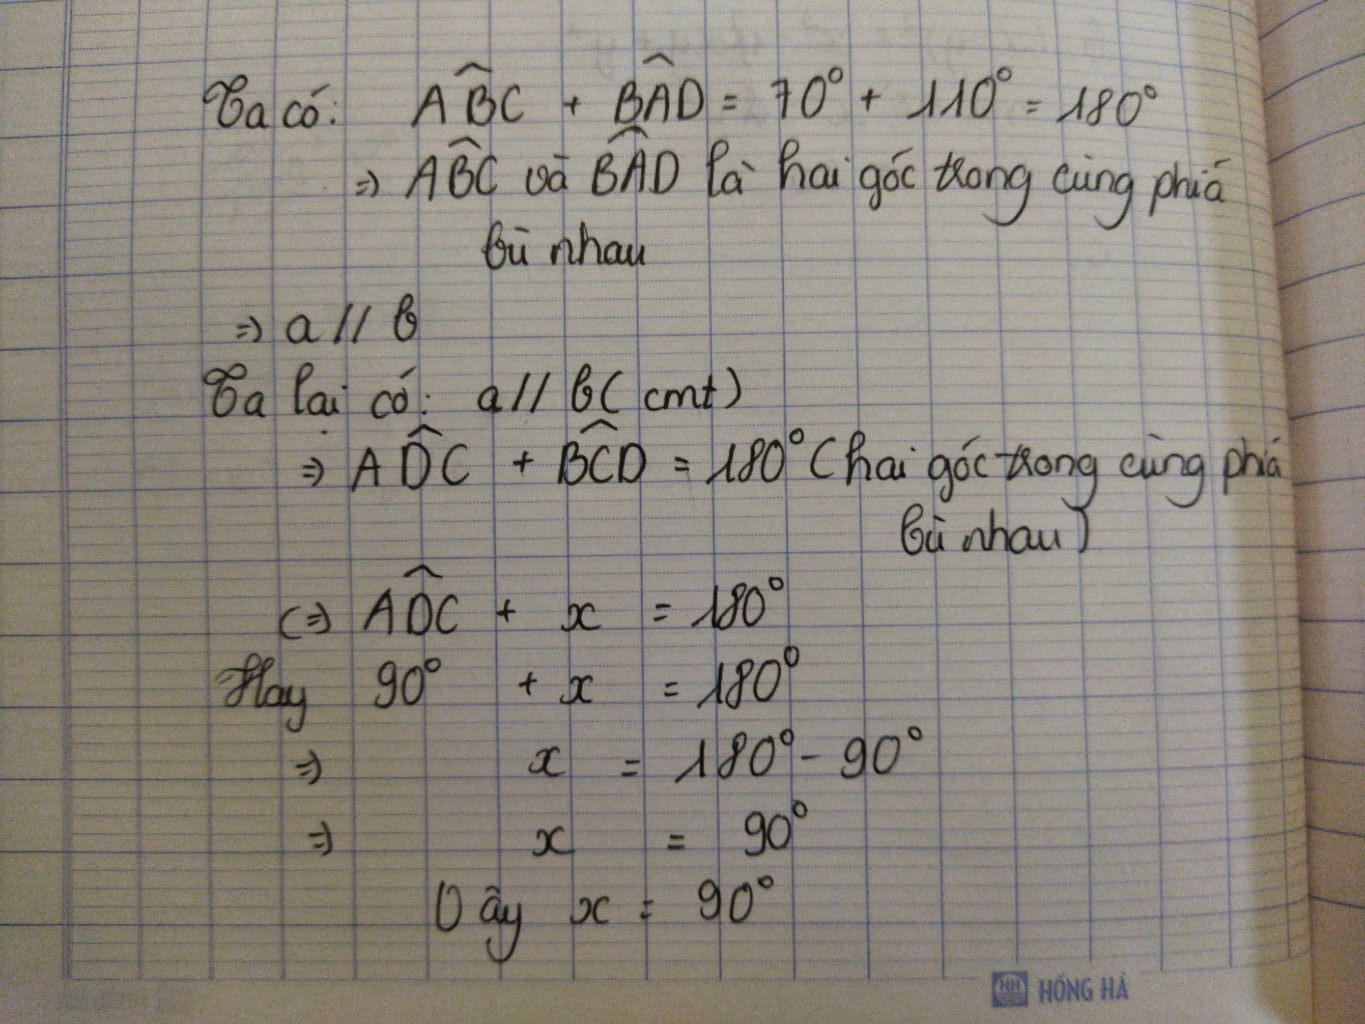 Ta có: ABC + BAD = 70° + 110° = 180°
=> ABC và BAD là hai góc trong cùng phiá
bù nhau
=> a // b
Ta lại có: a // b ( cmt )
=> ADC + BCD = 180° ( hai góc trong cùng phiá
bù nhau )
<=> ADC + x = 180°
Hay 90° + x = 180°
=> x = 180° - 90°
=> x = 90°
Vậy x = 90°
HH HỒNG HÀ